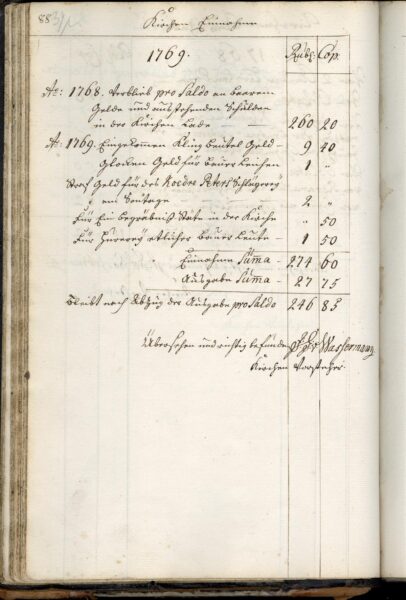 88
Kirchen Einnahme
1769. Rubl. Cop.
Ao: 1768. Verblieb pro Saldo an baarem
Gelde und ausstehenden Schulden
in der Kirchen Lade — 260 20
Ao: 1769. Eingekommen Kling beutel Geld - 9 40
Glocken Geld für Bauer Leichen 1 "
Straf Geld für des Koedre Peters Schlägerey
am Sontage 2 "
Für Ein begräbniß Stäte in der Kirche " 50
Für Hurerey etlicher Bauer Leute - 1 50
Einnahme Suma - 274 60
Ausgabe Suma - 27 75
Bleibt nach Abzug der Ausgabe pro Saldo 246 85
Übersehen und richtig befunden Wassermann
Kirchen Vorsteher.